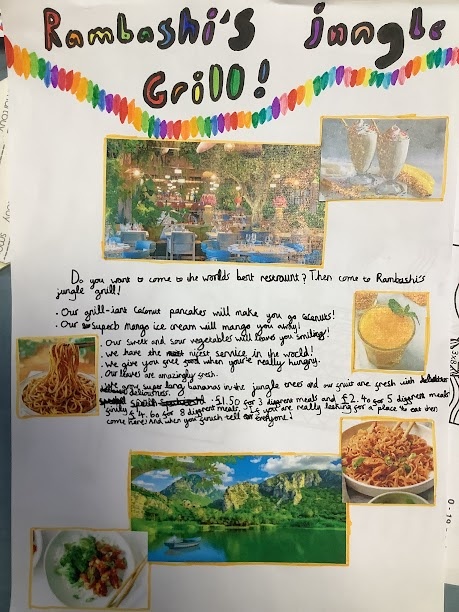 Rambashi's jungle
Grill!
Do you want to come to the worlds best reseraunt? Then come to Rambashi's
jungle grill!
· Our grill-iant Coconut pancakes will make you go coconuts!
· Our superb mango ice cream will mango you away!
· Our sweet and sour vegetables will leaves you smiling!
· We have the nicest service in the world!
· We give you free food when you're really hungry.
Our leaves are amazingly fresh.
grow super long bananas in the jungle and our fruit are fresh with
deliciousness.
· £1.50 for 3 diggerent meals and £2.40 for 5 diggerent meals
£4.60 for 8 diggerent meals. If you are really looking for a place to eat then
come here! And when you finish tell everyone!